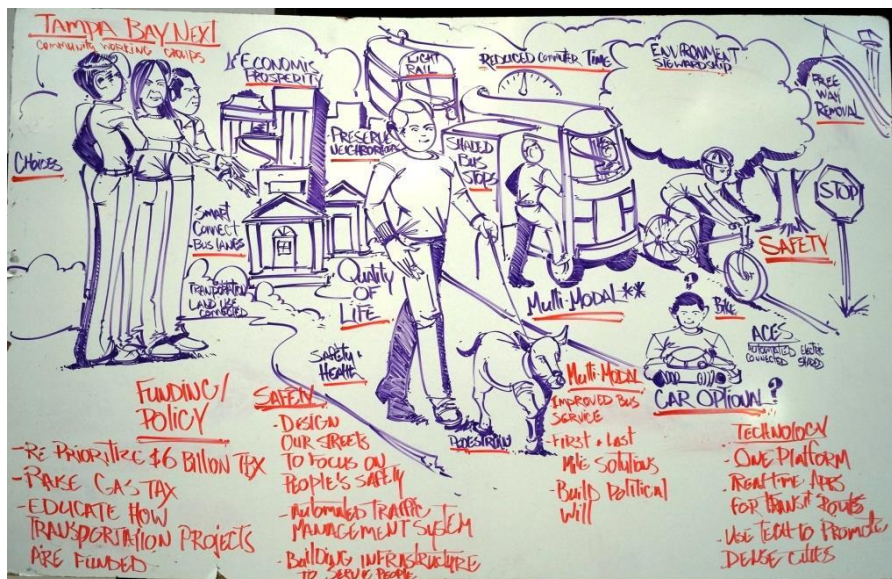 TAMPA BAY NEXT
COMMUNITY WORKING GROUPS
CHOICES
ECONOMIC
PROSPERITY
LIGHT
RAIL
REDUCED COMMUTER TIME
ENVIRONMENT
STEWARDSHIP
FREE
WAY
REMOVAL
PRESERVE
NEIGHBORHOODS
SHADED
BUS
STOPS
STOP
SMART
CONNECT
- BUS LANES
SAFETY
TRANSPORTATION
LAND USE
CONNECTED
QUALITY
OF
LIFE
MULTI-MODAL **
?
BIKE
ACES
AUTOMATED ELECTRIC
CONNECTED SHARED
SAFETY &
HEALTH
PEDESTRIAN
CAR OPTIONAL?
FUNDING/
POLICY
- RE PRIORITIZE $6 BILLION TAX
- RAISE GAS TAX
- EDUCATE HOW
TRANSPORTATION PROJECTS
ARE FUNDED
SAFETY
- DESIGN
OUR STREETS
TO FOCUS ON
PEOPLE'S SAFETY
- AUTOMATED TRAFFIC
MANAGEMENT SYSTEM
- BUILDING INFRASTRUCTURE
TO SERVE PEOPLE
MULTI-MODAL
IMPROVED BUS
SERVICE
- FIRST & LAST
MILE SOLUTIONS
- BUILD POLITICAL
WILL
TECHNOLOGY
- ONE PLATFORM
- REAL-TIME APPS
FOR TRANSIT ROUTES
- USE TECH TO PROMOTE
DENSE CITIES